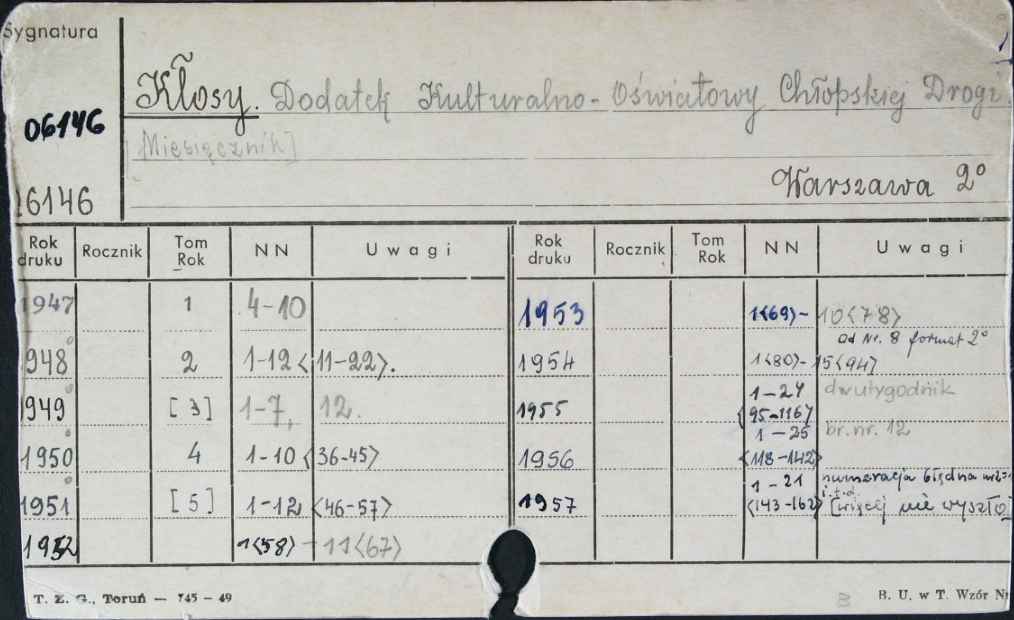 Sygnatura
Kłosy. Dodatek Kulturalno-Oświatowy Chłopskiej Drogi
06146
[Miesięcznik]
Warszawa 2°
6146
Rok druku Rocznik Tom Rok NN Uwagi Rok druku Rocznik Tom Rok NN Uwagi
1947 1 4-10 1953 1<69>- 10<78>
od Nr. 8 format 2°
1948 2 1-12 <11-22>. 1954 1<80>- 15<94>
1949 [3] 1-7, 12. 1955 1-24 dwutygodnik
<95-116>
1950 4 1-10 <36-45> 1956 1-25 br. nr. 12
<118-142>
1951 [5] 1-12 <46-57> 1957 1-21 numeracja błędna
<143-162> [więcej nie wyszło]
1952 1<58> - 11<67>
T. Z. G., Toruń — 745 - 49 B. U. w T. Wzór Nr